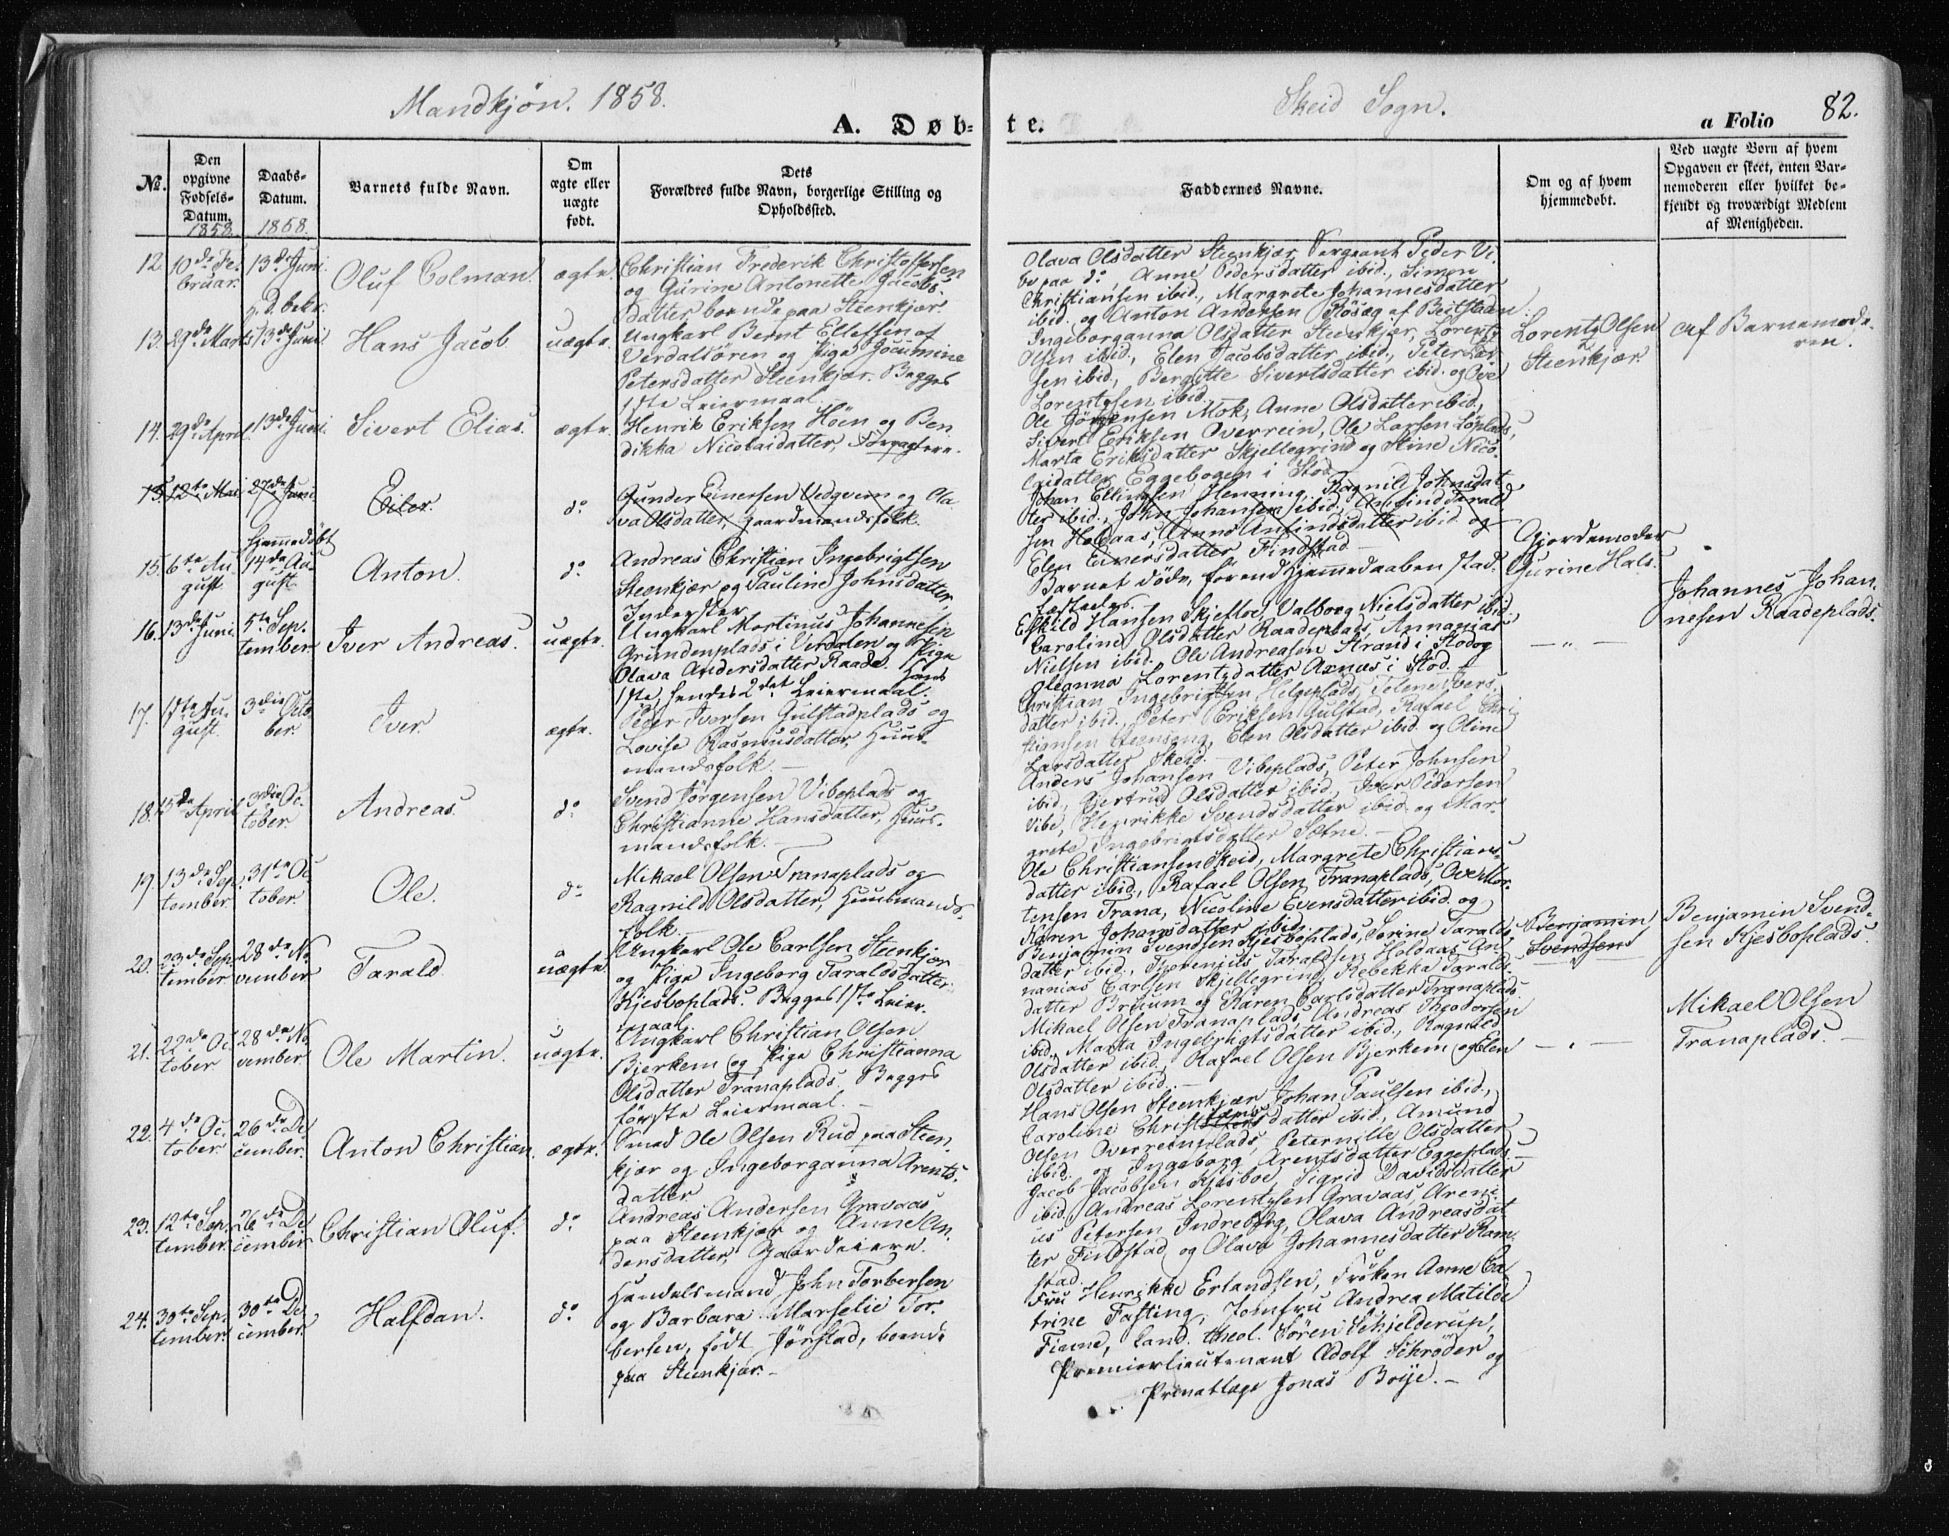 Mandkjøn. 1858.
Skeid Sogn.
A. Døb-
te.
a Folio 82.
No.
Den
opgivne
Fødsels-
Datum.
1858.
Daabs-
Datum.
1858.
Barnets fulde Navn.
Om
ægte eller
uægte
født.
Dets
Forældres fulde Navn, borgerlige Stilling og
Opholdssted.
Faddernes Navne.
Om og af hvem
hjemmedøbt.
Ved uægte Børn af hvem
Opgaven er skeet, enten Bar-
nemoderen eller hvilket be-
kjendt og troværdigt Medlem
af Menigheden.
12. 10de Fe-
bruar.
13de Juni
p. d. bekr.
Oluf Colman.
ægte.
Christian Frederik Christophersen
og Gurine Antonette Jacobs-
datter boende paa Steenkjær.
Olava Olsdatter Steenkjær, Sergeant Peder Vi-
be paa do, Anne Pedersdatter ibid., Simon
Christiansen ibid., Margrete Johannesdatter
ibid. og Anton Andersen Røsæg af Beitstaden.
13. 27de Marts
13de Juni
Hans Jacob
uægte.
Ungkarl Bernt Ellefsen af
Verdalsøren og Pige Jocumine
Petersdatter Steenkjær. Begges
1ste Leiermaal.
Ingeborganna Olsdatter Steenkjær, Lorentz
Olsen ibid., Elen Jacobsdatter ibid., Peter Lar-
sen ibid., Bergitte Sivertsdatter ibid. og Ove
Lorentzsen ibid.
Lorentz Olsen
Steenkjær.
Af Barnemode-
ren.
14. 29de April.
13de Juni.
Sivert Elias.
ægte.
Henrik Eriksen Høen og Ben
dikka Nicolaidatter, Forpagtere.
Ole Jørgensen Mok, Anne Olsdatter ibid.,
Sivert Eriksen Overrein, Ole Larsen Løplads,
Marta Eriksdatter Skjellegrind og Stine Nico-
laidatter Eggebogen i Stod.
15. 12te Mai
27de Juni
Eiler.
do
Gunder Einersen Vedgvern og Ola
va Olsdatter, Gaardmandsfolk.
Johan Ellingsen Henning, Ragnild Johnsdat
ter ibid., John Johansen ibid., Anfind Tarald
sen Holdaas, Anne Anfindsdatter ibid. og
Elen Einersdatter Findstad.
15. 6te Au-
gust
Hjemmedøbt
14de Au-
gust.
Anton.
do
Andreas Christian Ingebrigtsen
Steenkjær og Pauline Johnsdatter
Inderster.
Barnet døde, førend Hjemmedaaben stad-
fæstedes.
Gjordemoder
Gurine Hals.
16. 13de Juni.
5te Sep-
tember
Iver Andreas.
uægte.
Ungkarl Mortinus Johannesen
Grundenplads i Verdalen og Pige
Olava Andersdatter Raade. Hans
1ste, hendes 2det Leiermaal.
Eskild Hansen Skjefloe, Valborg Nielsdatter ibid.
Caroline Olsdatter Raadeplads, Annanias
Nielsen ibid. Ole Andreasen Strand i Stod og
Oleanna Lorentzdatter Asnæs i Stod.
— „ —
Johannes Johan-
nesen Raadeplads.
17. 1ste Au-
gust.
3die Octo-
ber.
Iver.
ægte.
Peder Iversen Gulstadplads og
Lovise Rasmusdatter, Huus-
mandsfolk.
Christian Ingebrigtsen Helgeplads, Telene Ivers-
datter ibid., Peter Eriksen Gulstad, Rafael Chri
stiansen Steenseng, Elen Olsdatter ibid. og Oline
Larsdatter Skeid.
18. 15de April
3die Oc-
tober.
Andreas.
do
Svend Jørgensen Vibeplads og
Christianne Hansdatter, Huus-
mandsfolk.
Anders Johansen Vibeplads, Peter Johnsen
ibid., Gjertrud Olsdatter ibid., Iver Pedersen
Vibe, Henrikke Svendsdatter ibid. og Mar-
grete Ingebrigtsdatter Sætne.
19. 13de Sep-
tember.
31te Oc-
tober.
Ole.
do
Mikael Olsen Tranaplads og
Ragnild Olsdatter, Huusmands-
folk.
Ole Christiansen Skeid, Margrete Christians-
datter ibid., Rafael Olsen Tranaplads, Ove Mor-
tensen Trana, Nicoline Evensdatter ibid. og
Karen Johansdatter ibid.
20. 23de Sep-
tember
28de No-
vember
Tarald.
uægte.
Ungkarl Ole Carlsen Steenkjær
og Pige Ingeborg Taraldsdatter
Kjesboplads. Begges 1ste Leier-
maal.
Benjamin Svendsen Kjesboplads, Serine Taralds-
datter ibid., Thorenius Taraldsen Holdaas, An-
nanias Carlsen Skjellegrind, Rebekka Taralds-
datter Breium og Karen Carlsdatter Tranaplads.
Benjamin
Svendsen
Benjamin Svend-
sen Kjesboplads.
21. 22de Oc-
tober
28de No-
vember
Ole Martin.
uægte.
Ungkarl Christian Olsen
Bjerkem og Pige Christianna
Olsdatter Tranaplads. Begges
første Leiermaal.
Mikael Olsen Tranaplads, Andreas Theodorsen
ibid., Marta Ingebrigtsdatter ibid., Ragnild
Olsdatter ibid., Rafael Olsen Bjerkem og Elen
Olsdatter ibid.
— „ —
Mikael Olsen
Tranaplads.
22. 4de Oc-
tober.
26de De-
cember.
Anton Christian.
ægte.
Smed Ole Olsen Rud paa Steen-
kjær og Ingeborganna Arents-
datter
Hans Olsen Steenkjær, Johan Paulsen ibid.,
Caroline Christensdatter ibid., Amund
Olsen Overreinplads, Peternille Olsdatter
ibid. og Ingeborg Arentsdatter Eggeplads.
23. 12te Sep-
tember
26de De-
cember
Christian Oluf.
do
Andreas Andersen Gravaas
paa Steenkjær og Anne An-
dersdatter, Gaardeiere.
Jacob Jacobsen Kjesboe, Sigrid Davidsdatter
ibid., Andreas Lorentzsen Gravaas, Areni-
us Petersen Indreberg, Olava Andreasdat
ter Findstad og Olava Johannesdatter Ram-
stad.
24. 30te Sep-
tember.
30te De-
cember.
Halfdan.
do
Handelsmand John Torbersen
og Barbara Marselie Tor-
bersen, født Jørstad, boende
paa Steenkjær.
Fru Henrikke Erlandsen, Frøken Anne Ca-
trine Fasting, Jomfru Andrea Matilde
Finne, Cand. theol. Søren Schjelderup,
Premierlieutenant Adolf Schrøder og
Privatlæge Jonas Boye.